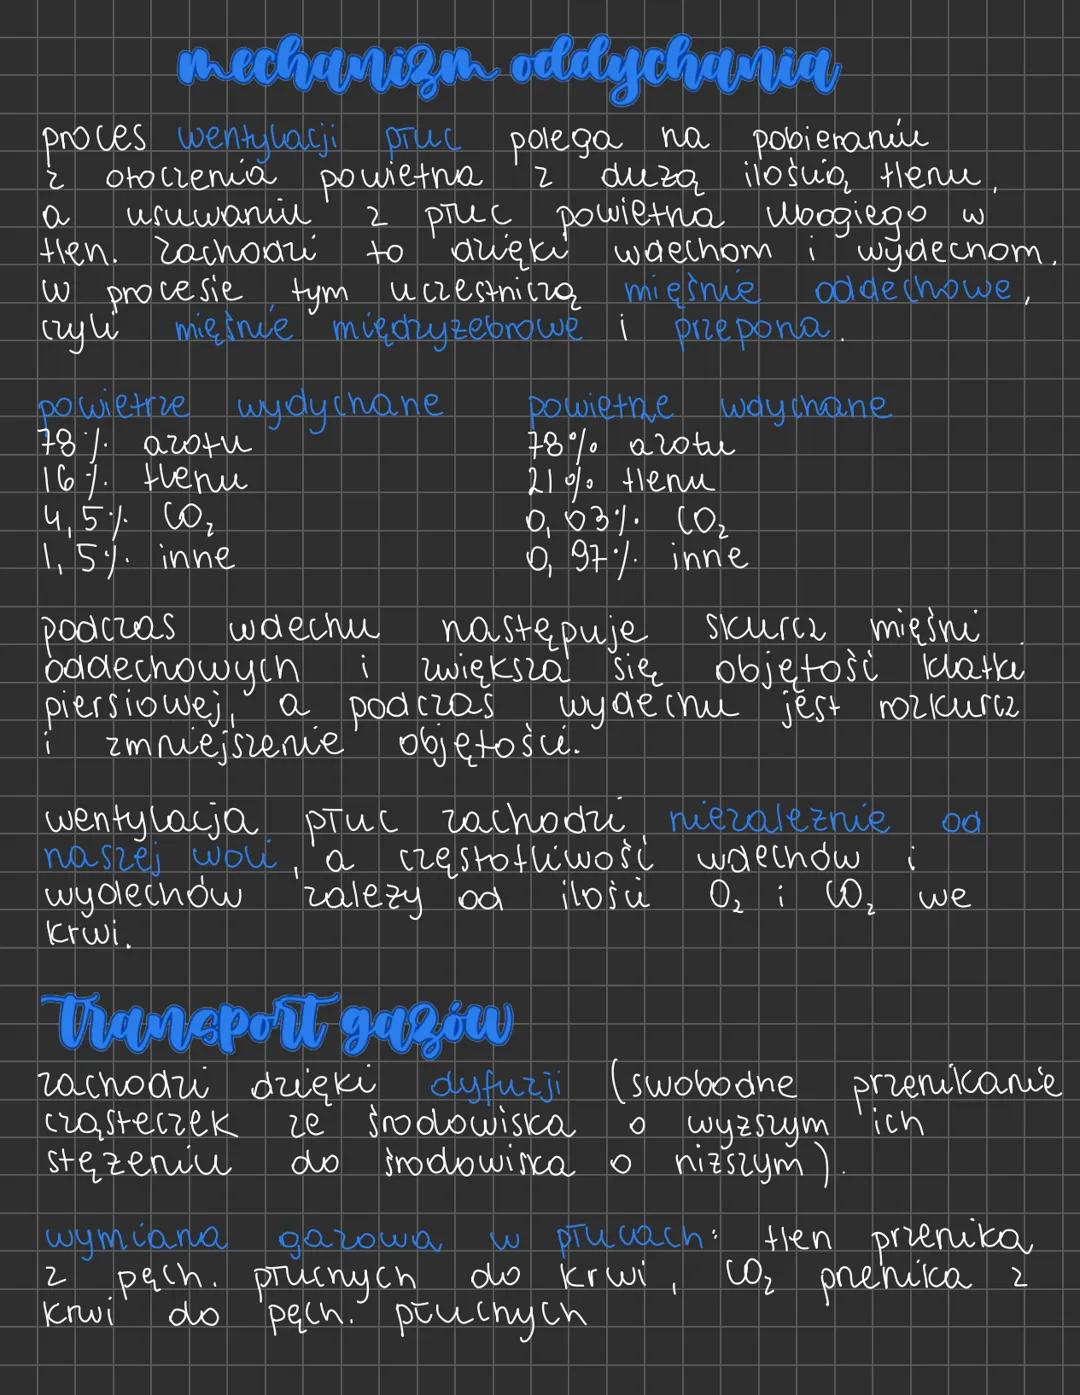 mechanizm oddychania
proces wentylacji płuc polega na pobieraniu
z otoczenia powietrza z dużą ilością tlenu,
a usuwaniu z płuc powietrza ubogiego w
tlen. Zachodzi to dzięki wdechom i wydechom.
W procesie tym uczestniczą mięśnie oddechowe,
czyli mięśnie międzyżebrowe i przepona.
powietrze wydychane
78% azotu
16% tlenu
4,5% CO₂
1,5% inne
powietrze wdychane
78% azotu
21% tlenu
0,03% CO₂
0,97% inne
podczas wdechu następuje skurcz mięśni
oddechowych i zwiększa się objętość klatki
piersiowej, a podczas wydechu jest rozkurcz
i zmniejszenie objętości.
wentylacja płuc zachodzi niezależnie od
naszej woli, a częstotliwość wdechów i
wydechów zależy od ilości O₂ i CO₂ we
krwi.
Transport gazów
zachodzi dzięki dyfuzji (swobodne przenikanie
cząsteczek ze środowiska o wyższym ich
stężeniu do środowiska o niższym).
wymiana gazowa w płucach: tlen przenika
z pęch. płucnych do krwi, CO₂ przenika z
krwi do pęch. płucnych